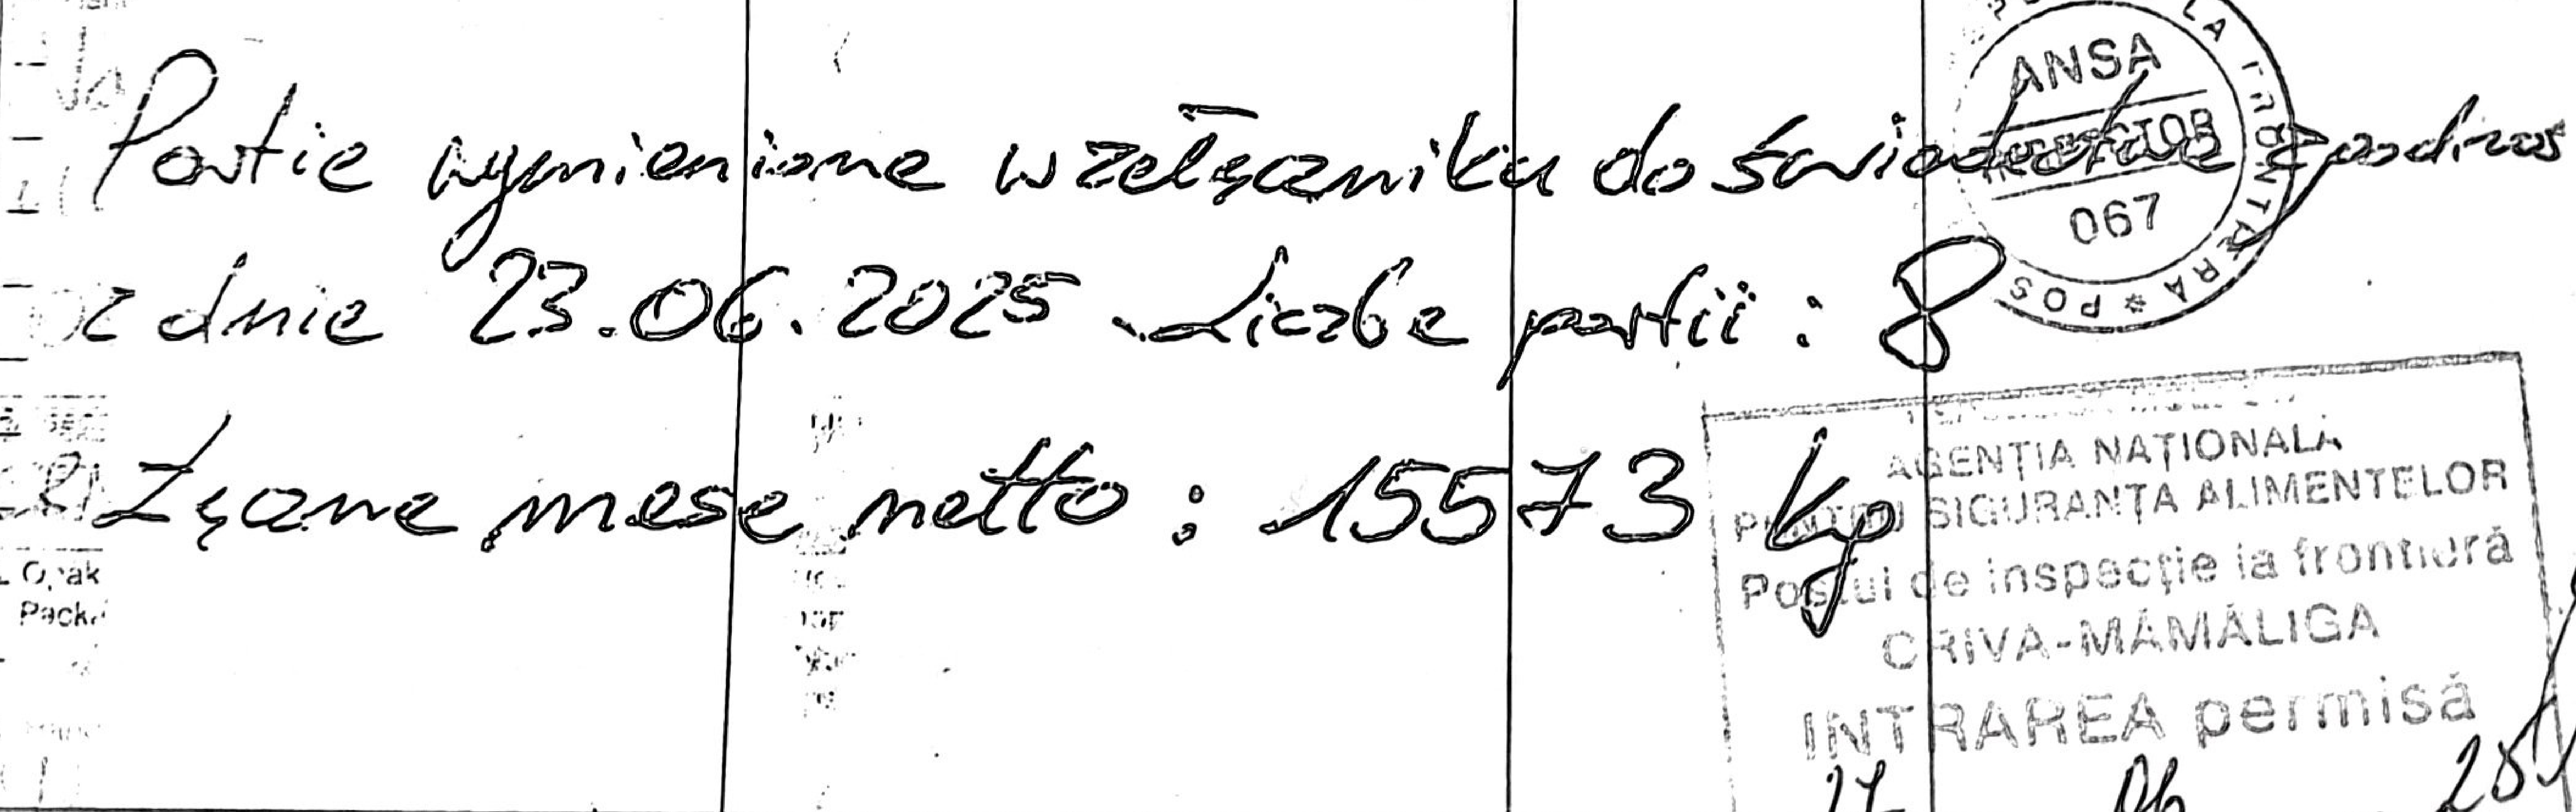 Partie wymienione w załączniku do świadectwa
z dnia 23.06.2025 Liczba partii : 8
Łączna masa netto : 15573 kg
ANSA
INSPECTOR
067
POS * POSTUL LA FRONTIERA
AGENȚIA NAȚIONALĂ
PENTRU SIGURANȚA ALIMENTELOR
Postul de inspecție la frontieră
CRIVA-MĂMĂLIGA
INTRAREA permisă
06 25
Opak
Pack